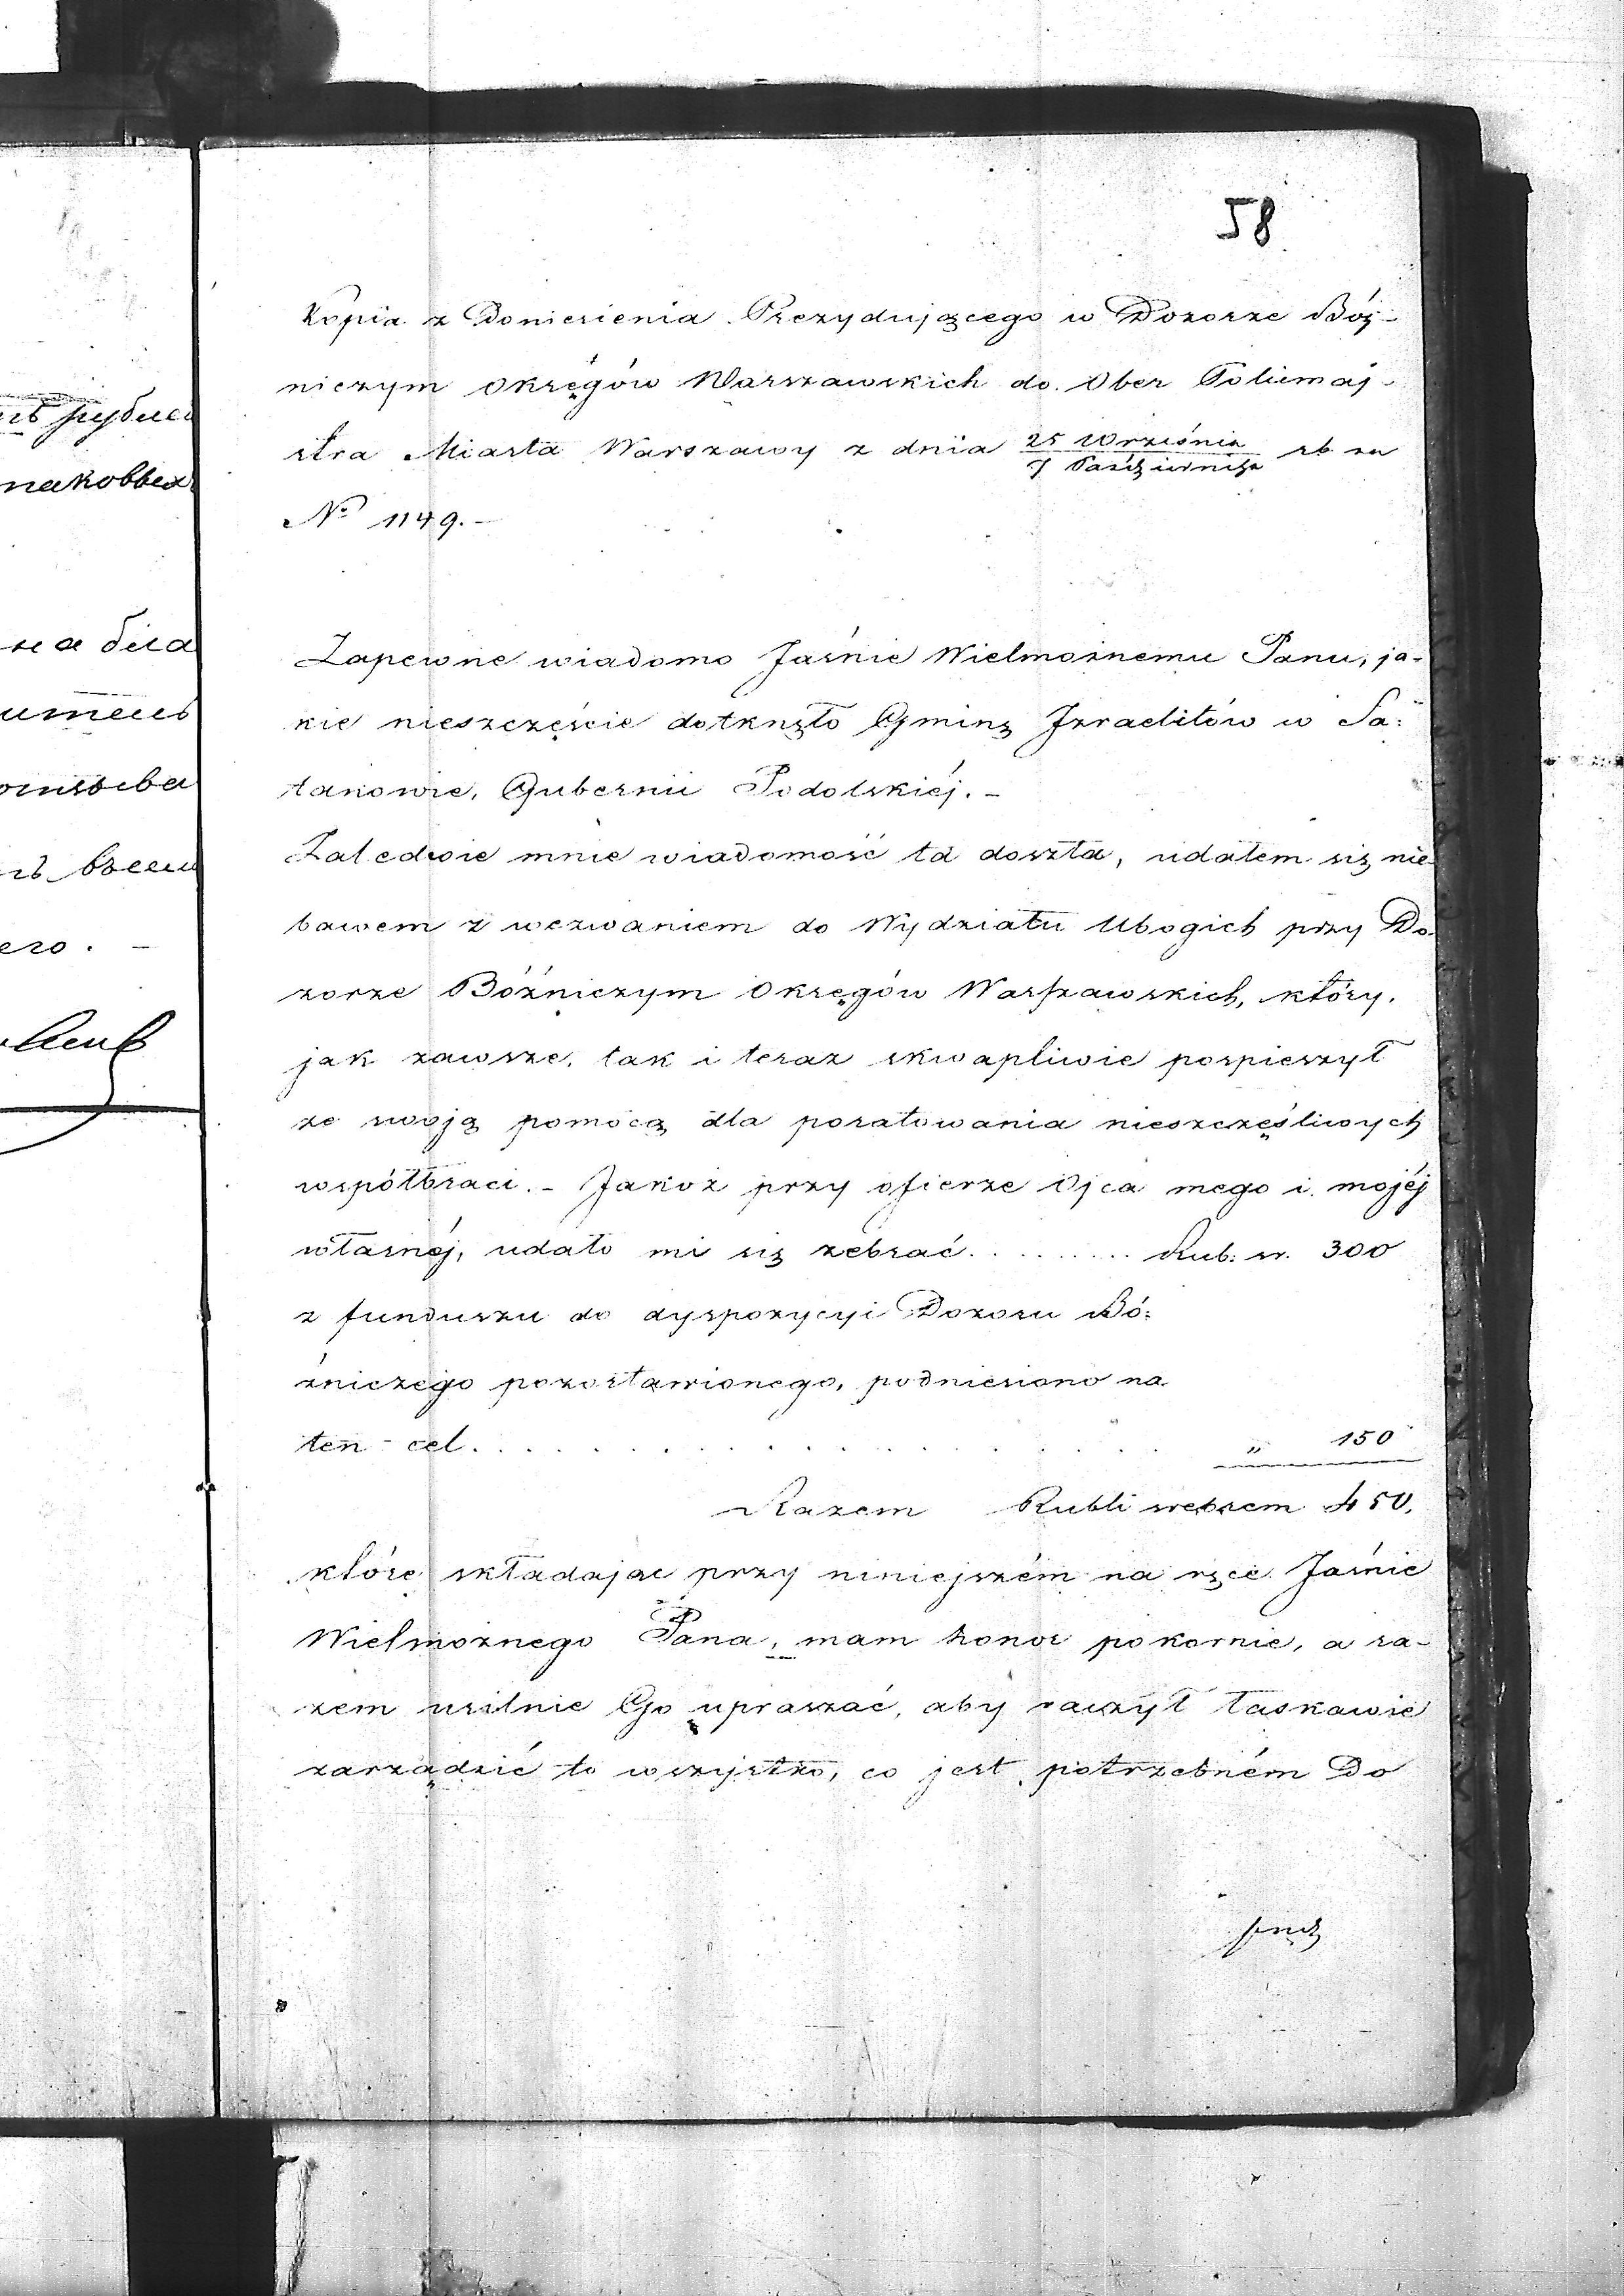 58
Kopia z Doniesienia Prezydującego w Dozorze Bóź-
niczym Okręgów Warszawskich do Ober Policmaj-
stra Miasta Warszawy z dnia 25 Września / 7 Październ. rb za
No 1149.-
Zapewne wiadomo Jaśnie Wielmożnemu Panu, ja-
kie nieszczęście dotknęło Gminę Izraelitów w Sa:
tanowie, Gubernii Podolskiéj.-
Zaledwie mnie wiadomość ta doszła, udałem się nie
bawem z wezwaniem do Wydziału Ubogich przy Do-
zorze Bóźniczym Okręgów Warszawskich, który,
jak zawsze, tak i teraz skwapliwie pospieszył
ze swoją pomocą dla poratowania nieszczęśliwych
współbraci.- Jakoż przy ofierze Ojca mego i mojéj
własnéj, udało mi się zebrać......... Rub: sr. 300
z funduszu do dyspozycyi Dozoru Bó:
źniczego pozostawionego, podniesiono na
ten cel. . . . . . . . . . . . . . " 150
Razem Rubli srebrem 450,
które składając przy niniejszém na ręce Jaśnie
Wielmożnego Pana, mam honor pokornie, a ra-
zem usilnie Go upraszać, aby raczył łaskawie
zarządzić to wszystko, co jest potrzebném do
на била
его. -